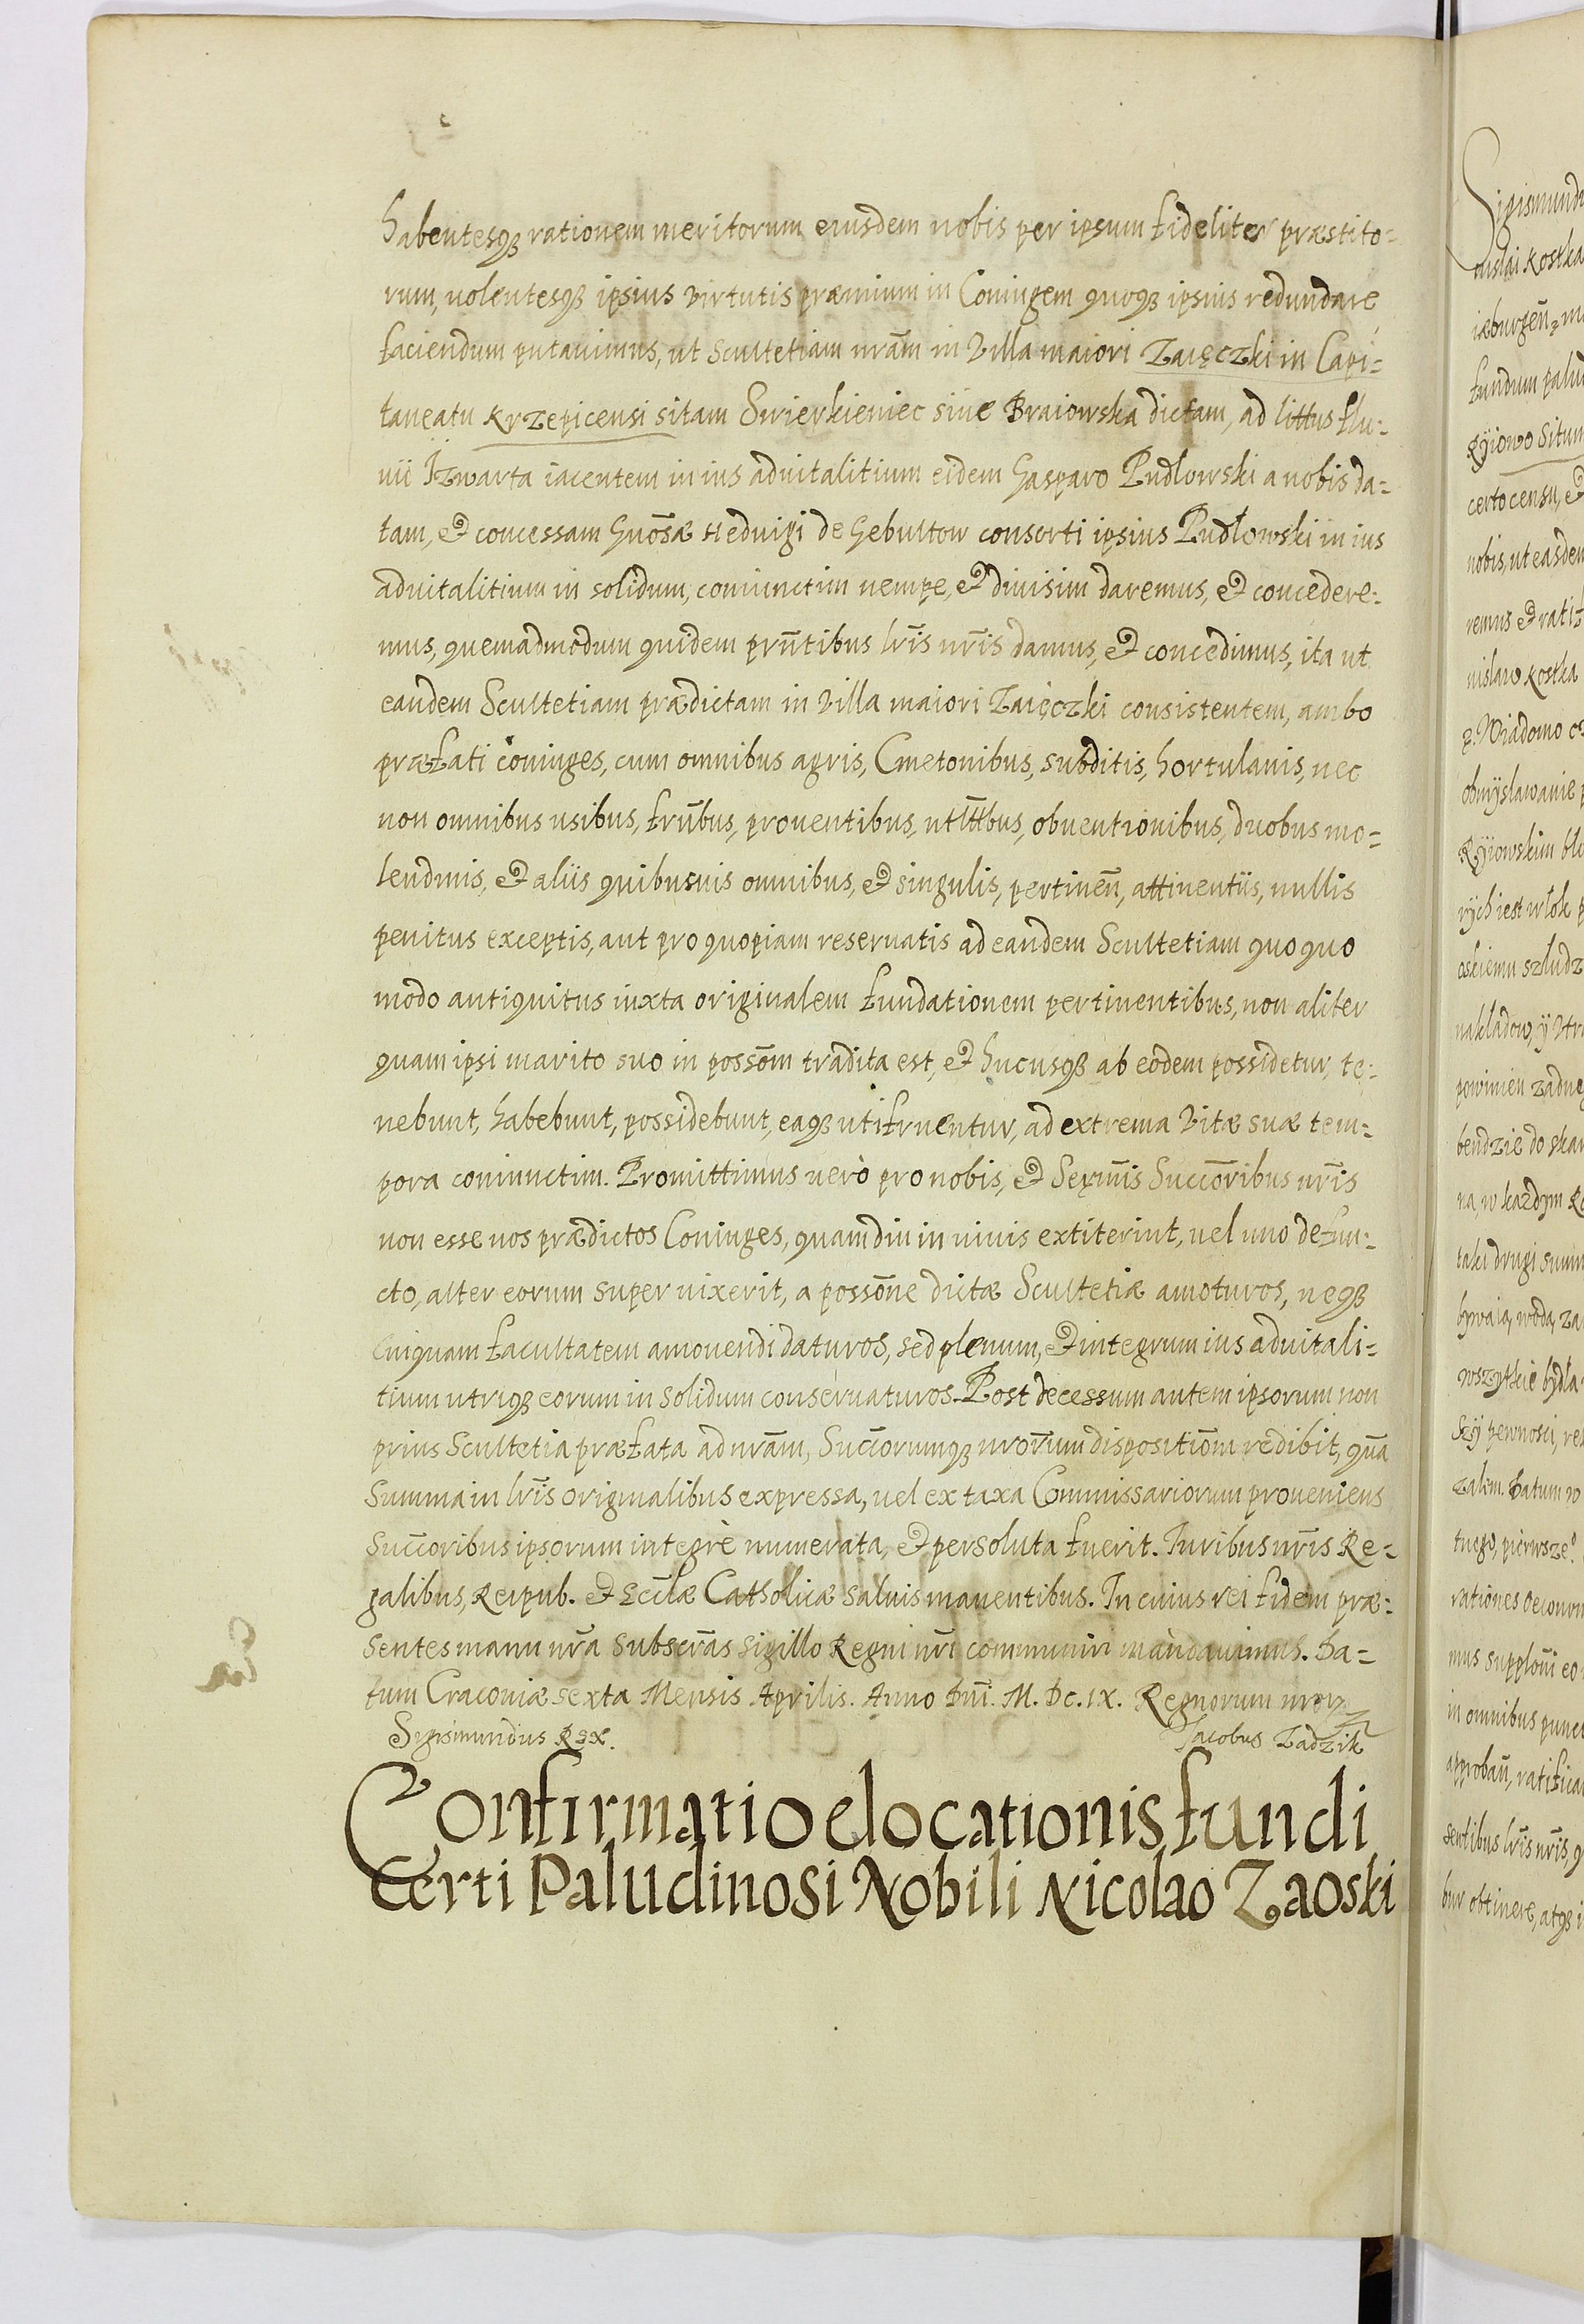 Habentesq3 rationem meritorum eiusdem nobis per ipsum fideliter præstito=
rum, uolentesq3 ipsius virtutis præmium in Coniugem quoq3 ipsius redundare
faciendum putauimus, ut Scultetiam nr̃am in Villa maiori Zaięczki in Capi=
taneatu Krzepicensi sitam Swierkieniec siue Braiowska dictam, ad littus flu=
uii Izwarta iacentem in ius aduitalitium eidem Gasparo Pudłowski a nobis da=
tam, et concessam Gnõsæ Heduigi de Gebultow consorti ipsius Pudłowski in ius
aduitalitium in solidum, coniunctim nempe, et diuisim daremus, et concedere=
mus, quemadmodum quidem pr̃ntibus lr̃is nr̃is damus, et concedimus, ita ut
eandem Scultetiam prædictam in Villa maiori Zaięczki consistentem, ambo
præfati coniuges, cum omnibus agris, Cmetonibus, subditis, hortulanis, nec
non omnibus usibus, frũbus, prouentibus, utilt̃tbus, obuentionibus, duobus mo=
lendinis, et aliis quibusuis omnibus, et singulis, pertineñ, attinentiis, nullis
penitus exceptis, aut pro quopiam reseruatis ad eandem Scultetiam quo quo
modo antiquitus iuxta originalem fundationem pertinentibus, non aliter
quam ipsi marito suo in possõm tradita est, et hucusq3 ab eodem possidetur, te=
nebunt, habebunt, possidebunt, eaq3 utifruentur, ad extrema Vitæ suæ tem=
pora coniunctim. Promittimus uerò pro nobis, et Serm̃is Succõribus nr̃is
non esse nos prædictos Coniuges, quamdiu in uiuis extiterint, uel uno defun=
cto, alter eorum superuixerit, a possõne dictæ Scultetiæ amoturos, neq3
Cuiquam facultatem amouendi daturos, sed plenum, et integrum ius aduitali=
tium utriq3 eorum in solidum conseruaturos. Post decessum autem ipsorum non
prius Scultetia præfata ad nr̃am, Succ̃orumq3 nrõrum dispositiõm redibit, quã
Summa in lr̃is originalibus expressa, uel ex taxa Commissariorum proueniens
Succ̃oribus ipsorum integrè numerata, et persoluta fuerit. Iuribus nr̃is Re=
galibus, Reipub. et Eccl̃æ Catholicæ saluis manentibus. In cuius rei fidem præ=
sentes manu nr̃a subscr̃as sigillo Regni nr̃i communiri mandauimus. Da=
tum Cracouiæ sexta Mensis Aprilis. Anno Dñi. M. DC. IX. Regnorum nror
Sigismundus Rex. Jacobus Zadzik
Confirmatio elocationis fundi
Certi Paludinosi Nobili Nicolao Zaoski
Sigismund
ouslai Kostka
iæburgeñ
fundum palu
gÿiowo Situm
certo censu, et
nobis, ut easdem
remus et ratif
nislaw Kostka
p. Wiadomo
obmÿslawanie p
Rÿiowskim bło
rÿch iest włok p
oskiemu szludz
nakładow, ÿ Utr
powinien zadne
bendzie do skar
na, w kazdym R
taki drugi summ
bywaia, woda, za
wszytkie bydła
Szÿ pewnosci, re
zalem. Datum w
tuego, pierwszeº
rationes Oeconom
mus supploñi eo
in omnibus punct
approbañ, ratifica
sentibus lr̃is nr̃is, q
bur obtinere, atq3 i